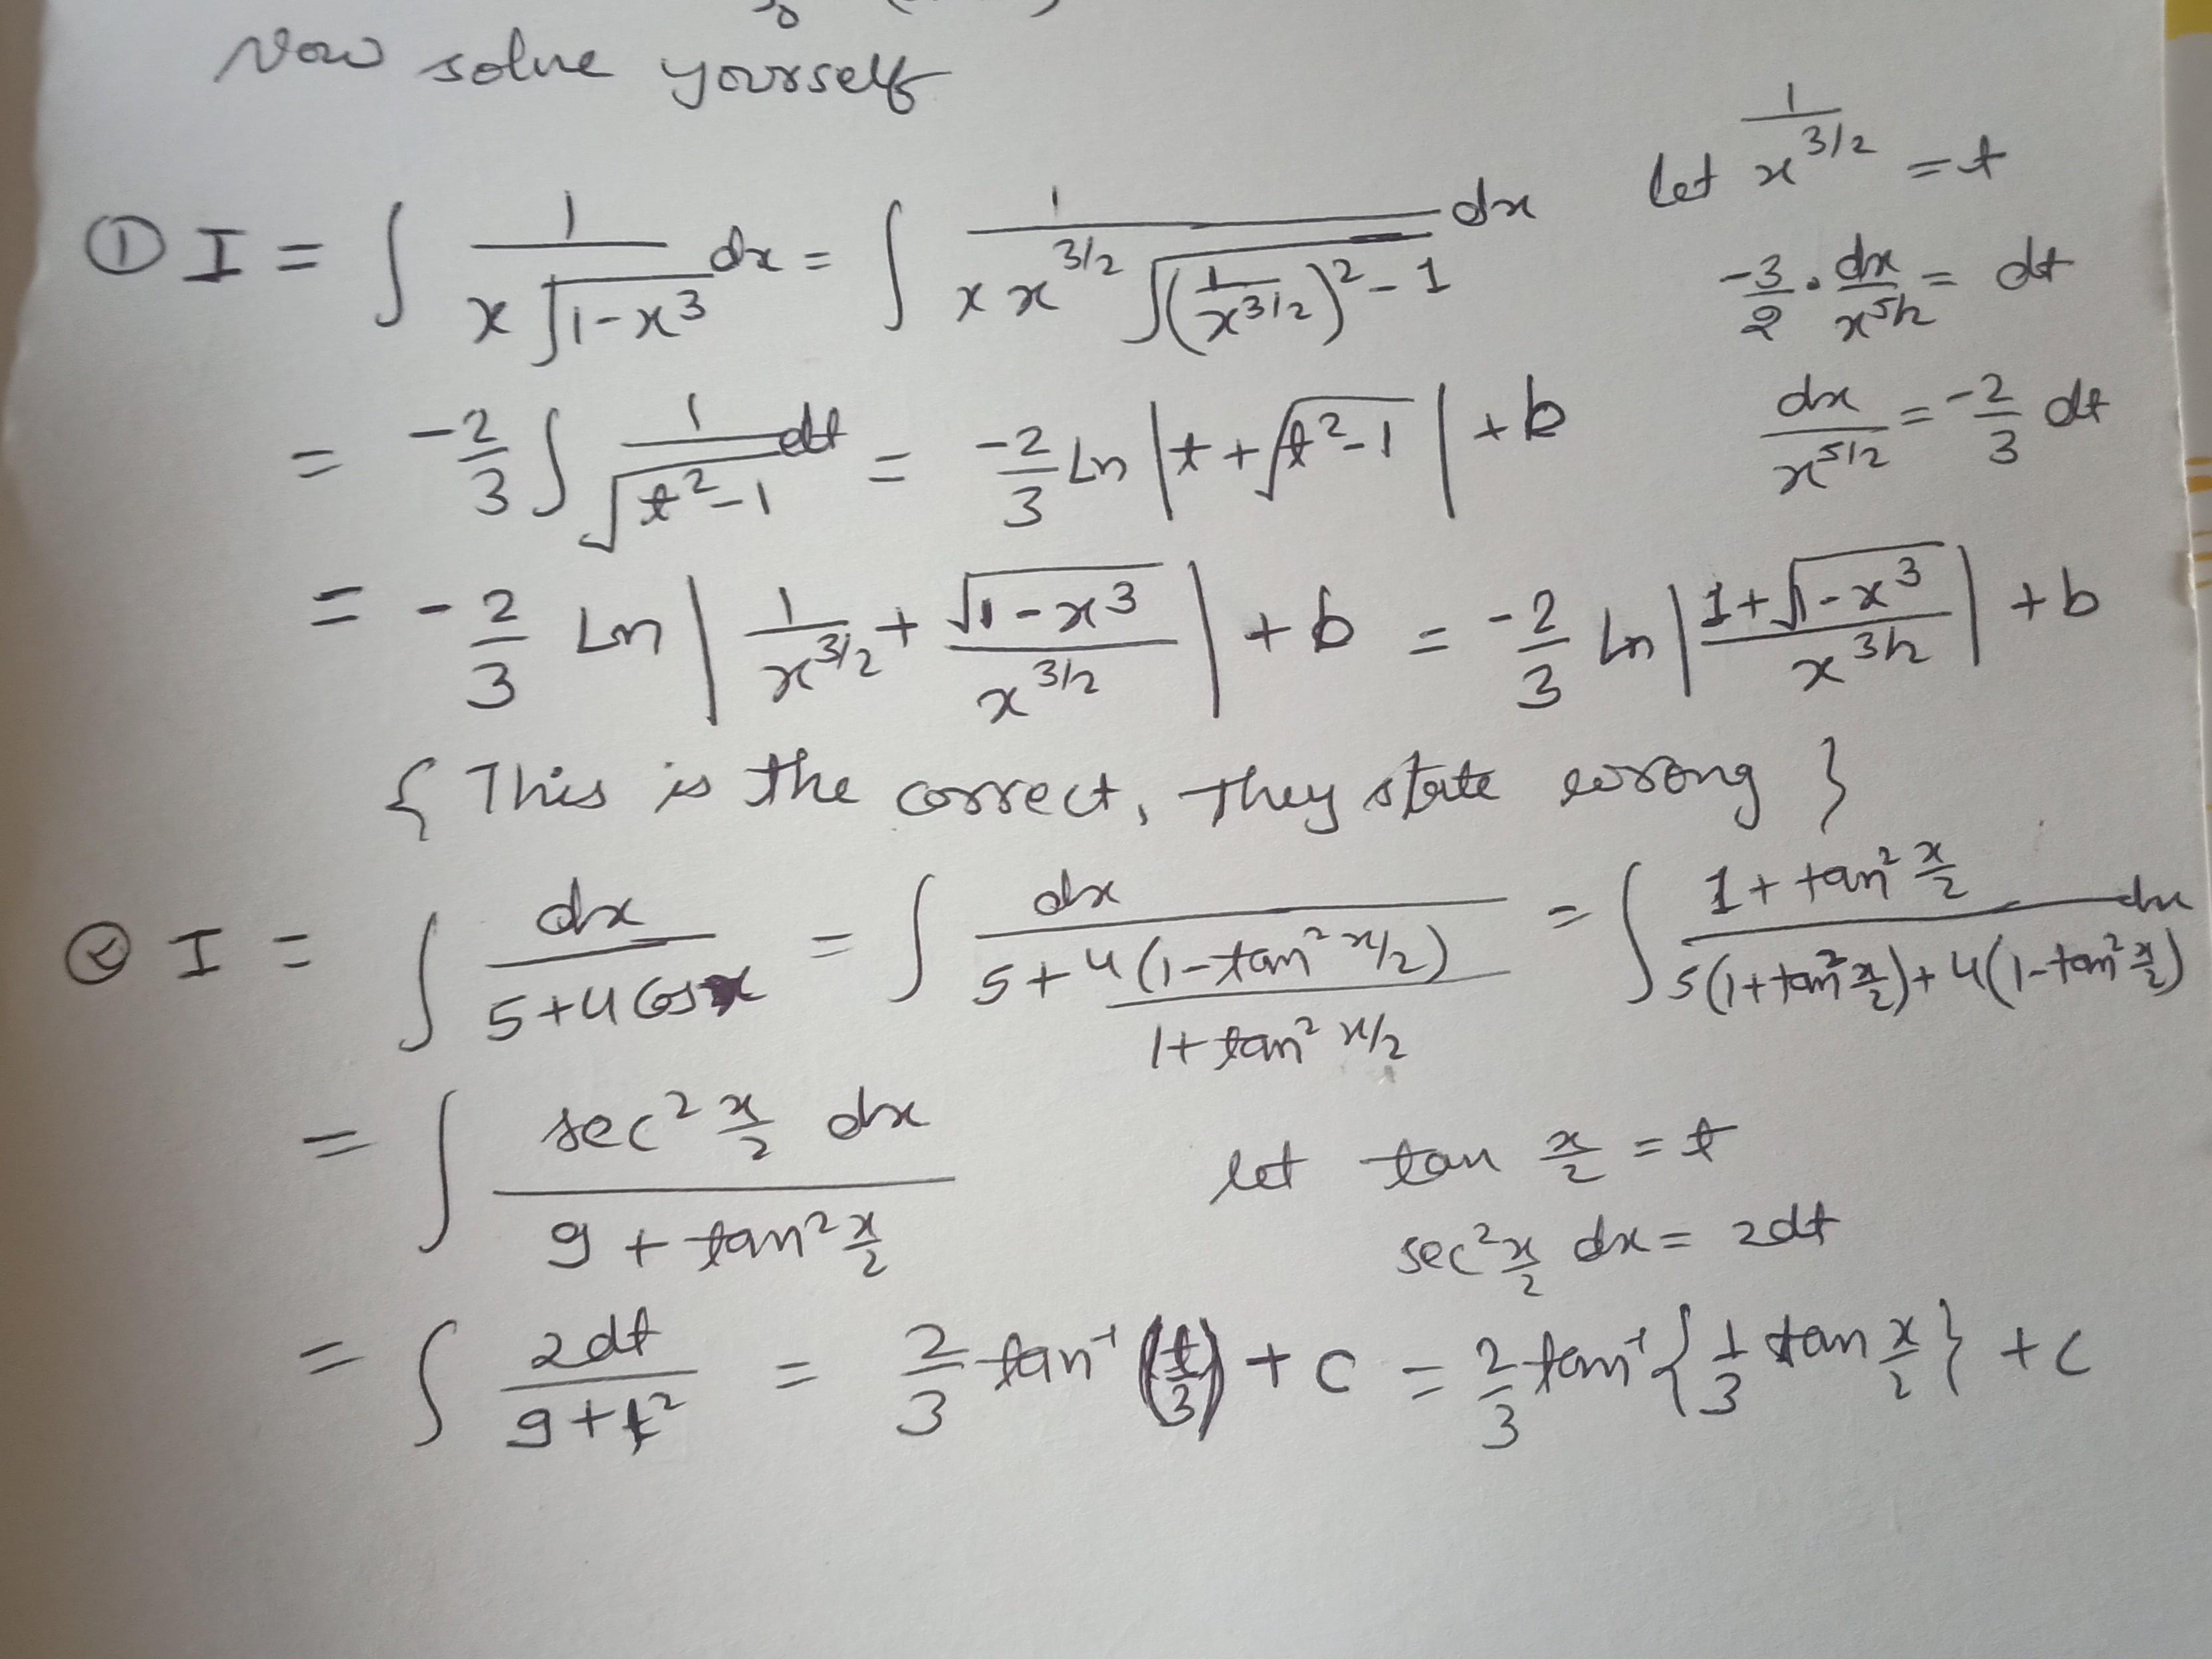 Now solve yourself
① I = ∫ 1/(x√(1-x³)) dx = ∫ 1/(x x^(3/2) √((1/x^(3/2))² - 1)) dx
Let 1/x^(3/2) = t
-3/2 · dx/x^(5/2) = dt
= -2/3 ∫ 1/√(t²-1) dt = -2/3 Ln |t + √(t²-1)| + b
dx/x^(5/2) = -2/3 dt
= -2/3 Ln | 1/x^(3/2) + √(1-x³)/x^(3/2) | + b = -2/3 Ln | (1+√(1-x³))/x^(3/2) | + b
{ This is the correct, they state wrong }
② I = ∫ dx/(5+4Cosx) = ∫ dx/(5 + 4(1-tan² x/2)/(1+tan² x/2)) = ∫ (1+tan² x/2)/(5(1+tan² x/2)+4(1-tan² x/2)) dx
= ∫ sec² x/2 dx/(9 + tan² x/2)
let tan x/2 = t
sec² x/2 dx = 2dt
= ∫ 2dt/(9+t²) = 2/3 tan⁻¹ (t/3) + C = 2/3 tan⁻¹ {1/3 tan x/2} + C